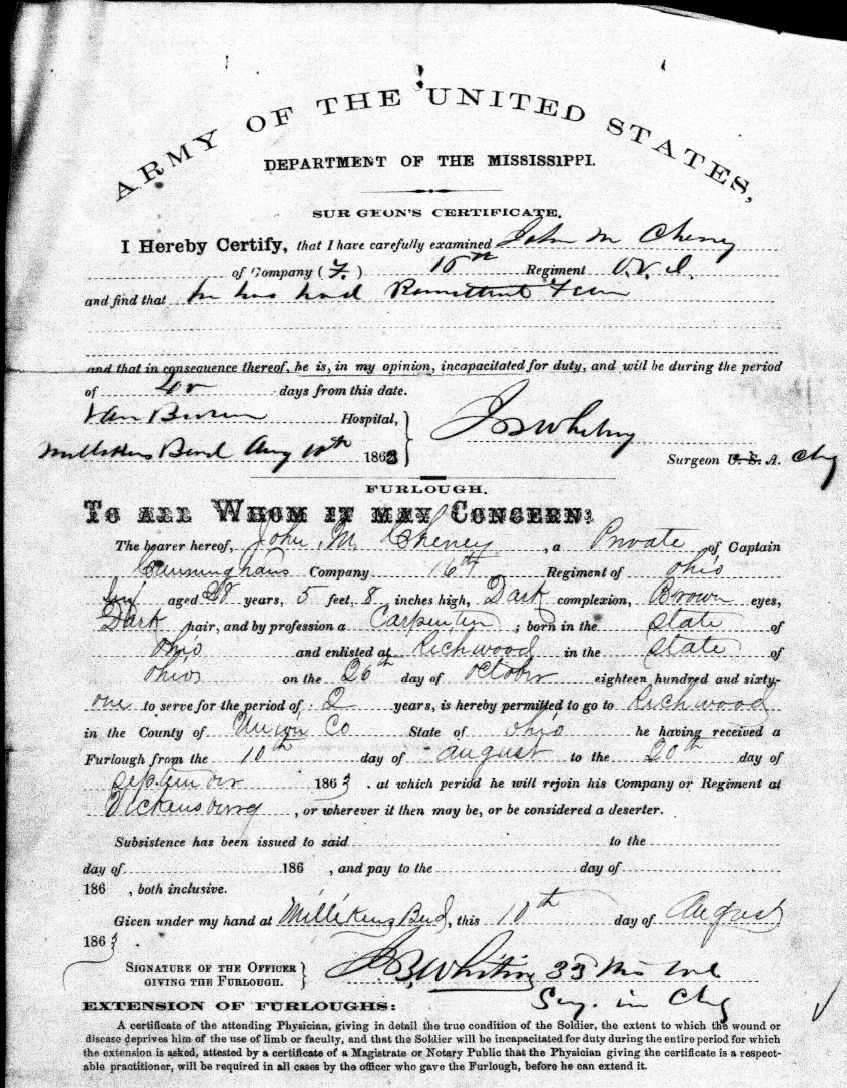 ARMY OF THE UNITED STATES,
DEPARTMENT OF THE MISSISSIPPI.
SURGEON'S CERTIFICATE.
I Hereby Certify, that I have carefully examined John M Cheney
of Company (F.) Regiment O.V.I.
and find that he has had Remittent Fever
and that in consequence thereof, he is, in my opinion, incapacitated for duty, and will be during the period
of 40 days from this date.
Van Buren Hospital,
Millikens Bend Aug 10th 1863
J B Whiting
Surgeon U. S. A. Chg
FURLOUGH.
TO ALL WHOM IT MAY CONCERN:
The bearer hereof, John M. Cheney, a Private of Captain
Cunninghams Company 16th Regiment of Ohio
Inf aged 28 years, 5 feet, 8 inches high, Dark complexion, Brown eyes,
Dark hair, and by profession a Carpenter; born in the state of
Ohio and enlisted at Richwood in the state of
Ohio on the 26th day of October eighteen hundred and sixty-
one to serve for the period of 2 years, is hereby permitted to go to Richwood
in the County of Union Co State of Ohio he having received a
Furlough from the 10th day of august to the 20th day of
September 1863. at which period he will rejoin his Company or Regiment at
Vickensburg, or wherever it then may be, or be considered a deserter.
Subsistence has been issued to said to the
day of 186 , and pay to the day of
186 , both inclusive.
Given under my hand at Millikens Bend, this 10th day of August
1863.
SIGNATURE OF THE OFFICER
GIVING THE FURLOUGH.
J B Whiting 33 Wis Vol
Surg. in Chg
EXTENSION OF FURLOUGHS:
A certificate of the attending Physician, giving in detail the true condition of the Soldier, the extent to which the wound or
disease deprives him of the use of limb or faculty, and that the Soldier will be incapacitated for duty during the entire period for which
the extension is asked, attested by a certificate of a Magistrate or Notary Public that the Physician giving the certificate is a respect-
able practitioner, will be required in all cases by the officer who gave the Furlough, before he can extend it.